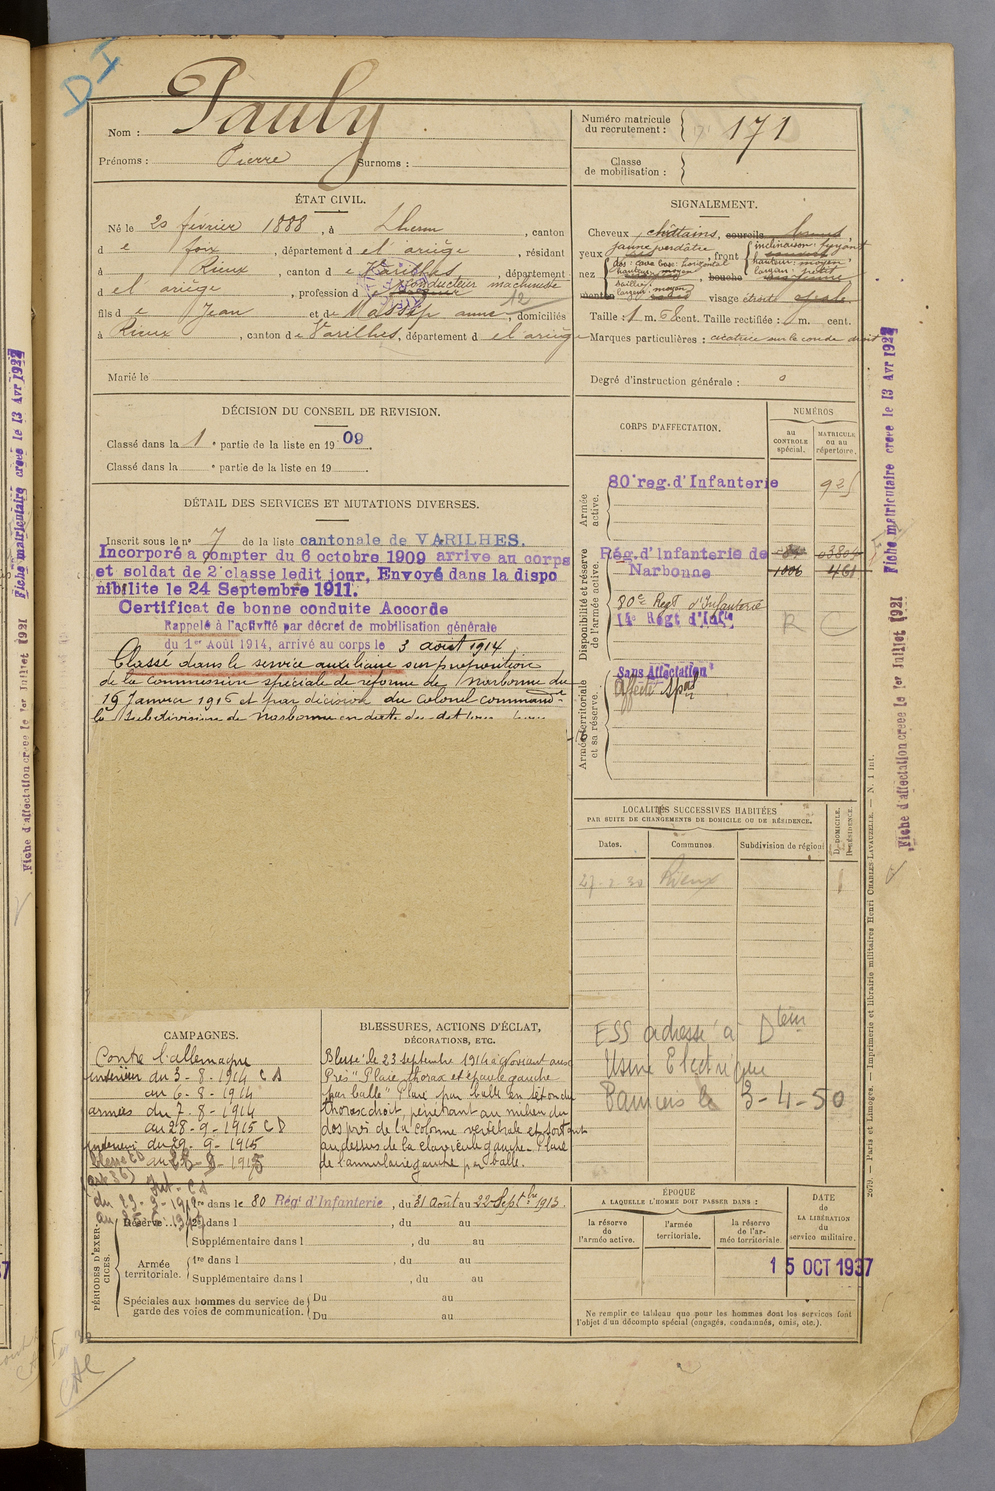 DI
Nom : Pauly
Prénoms : Pierre Surnoms :
Numéro matricule du recrutement : 171
Classe de mobilisation :
ÉTAT CIVIL.
Né le 20 février 1888, à Lherm, canton
de foix, département de l'ariège, résidant
à Rieux, canton de Varilhes, département
de l'ariège, profession de conducteur machiniste
fils de Jean et de Massep anne, domiciliés
à Rieux, canton de Varilhes, département de l'ariège
Marié le
SIGNALEMENT.
Cheveux châtains, sourcils
yeux jaune verdâtre, front inclinaison : fuyant hauteur : moyen largeur : petit
nez dos : cave base : horizontal hauteur : moyen saillie largeur : moyen, bouche
menton visage étroit
Taille : 1 m. 68 cent. Taille rectifiée : m. cent.
Marques particulières : cicatrice sur le coude droit
Degré d'instruction générale : 0
DÉCISION DU CONSEIL DE REVISION.
Classé dans la 1e partie de la liste en 1909.
Classé dans la e partie de la liste en 19
DÉTAIL DES SERVICES ET MUTATIONS DIVERSES.
Inscrit sous le n° 7 de la liste cantonale de VARILHES.
Incorporé a compter du 6 octobre 1909 arrive au corps
et soldat de 2e classe ledit jour, Envoyé dans la dispo
nibilite le 24 Septembre 1911.
Certificat de bonne conduite Accorde
Rappelé à l'activité par décret de mobilisation générale
du 1er Août 1914, arrivé au corps le 3 août 1914
Classé dans le service auxiliaire sur proposition
de la commission spéciale de réforme de Narbonne du
19 Janvier 1916 et par décision du Colonel command-
la Subdivision de Narbonne en date du
CORPS D'AFFECTATION.
NUMÉROS
au CONTROLE spécial.
MATRICULE ou au répertoire.
Armée active.
80e reg. d'Infanterie 925
Disponibilité et réserve de l'armée active.
Rég. d'Infanterie de 03804
Narbonne 1006 461
80e Regt d'Infanterie
14e Régt d'Inf
Armée territoriale et sa réserve.
Sans Affectation
Affecté Spéal
LOCALITÉS SUCCESSIVES HABITÉES
PAR SUITE DE CHANGEMENTS DE DOMICILE OU DE RÉSIDENCE.
Dates. Communes. Subdivision de région D. DOMICILE. R. RÉSIDENCE.
27-2-30 Rieux
ESS adressé à Dtem
Usine Electrique
Pamiers le 3-4-50
CAMPAGNES.
Contre l'allemagne
intérieur du 3-8-1914 CS
au 6-8-1914
armées du 7-8-1914
au 28-9-1915 CD
intérieur du 29-9-1915
BLESSURES, ACTIONS D'ÉCLAT,
DÉCORATIONS, ETC.
Blessé le 23 septembre 1914 à Noviant aux
Prés "Plaie thorax et épaule gauche
par balle" Plaie par balle en séton du
thorax droit, pénétrant au milieu du
dos près de la colonne vertébrale et sortant
au dessus de la clavicule gauche. Plaie
de l'annulaire gauche par balle.
PÉRIODES D'EXERCICES.
Réserve 1re dans le 80 Rég d'Infanterie, du 31 Août au 22 Septbre 1913.
2e dans l , du au
Supplémentaire dans l , du au
Armée territoriale. 1re dans l , du au
Supplémentaire dans l , du au
Spéciales aux hommes du service de garde des voies de communication. Du au
Du au
ÉPOQUE
A LAQUELLE L'HOMME DOIT PASSER DANS :
la réserve de l'armée active. l'armée territoriale. la réserve de l'armée territoriale.
DATE DE LA LIBÉRATION du service militaire.
15 OCT 1937
Ne remplir ce tableau que pour les hommes dont les services font
l'objet d'un décompte spécial (engagés, condamnés, omis, etc.).
2679. — Paris et Limoges. — Imprimerie et librairie militaires Henri CHARLES-LAVAUZELLE. — N. 1 int.
Fiche matriculaire creee le 13 Avr 1922
Fiche d'affectation creee le 1er Juillet 1921
Fiche matriculaire creee le 13 Avr 1922
Fiche d'affectation creee le 1er Juillet 1921